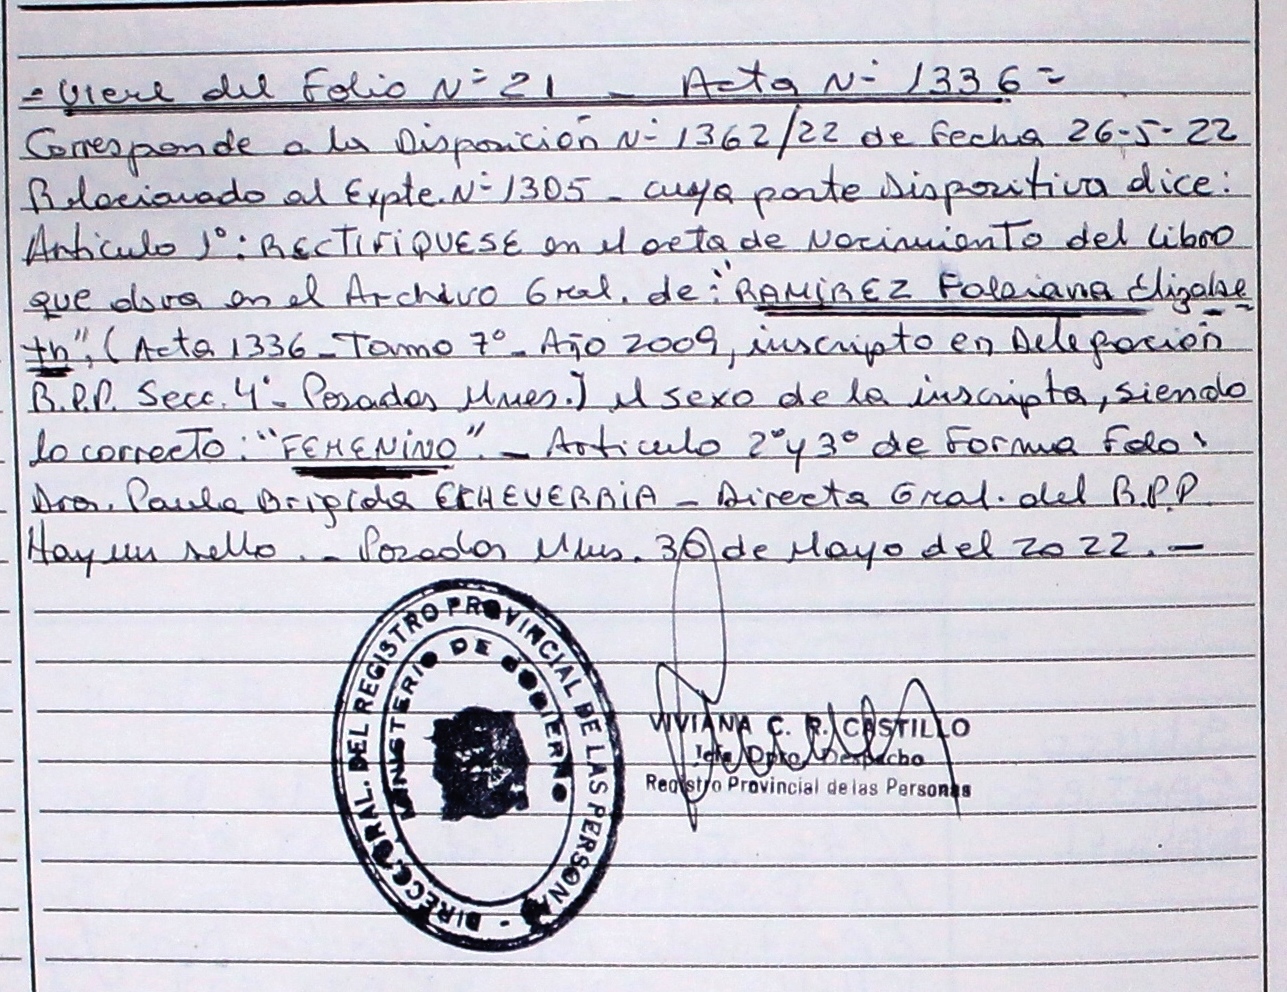 = Viene del Folio Nº 21 - Acta Nº 1336 =
Corresponde a la Disposición Nº 1362/22 de Fecha 26-5-22
Relacionado al Expte. Nº 1305 - cuya parte Dispositiva dice:
Artículo 1º: RECTIFIQUESE en el acta de Nacimiento del Libro
que obra en el Archivo Gral. de: "RAMIREZ Fabiana Elizabe
th", (Acta 1336 - Tomo 7º - Año 2009, inscripto en Delegación
R.P.P. Secc. 4º - Posadas Mnes.) el sexo de la inscripta, siendo
lo correcto: "FEMENINO". - Artículo 2º y 3º de Forma Fdo:
Dra. Paula Brigida ECHEVERRIA - Directa Gral. del R.P.P.
Hay un sello. - Posadas Mnes. 30 de Mayo del 2022. -
DIRECC. GRAL. DEL REGISTRO PROVINCIAL DE LAS PERSONAS -
MINISTERIO DE GOBIERNO
VIVIANA C. R. CASTILLO
Jefe Dpto. Despacho
Registro Provincial de las Personas